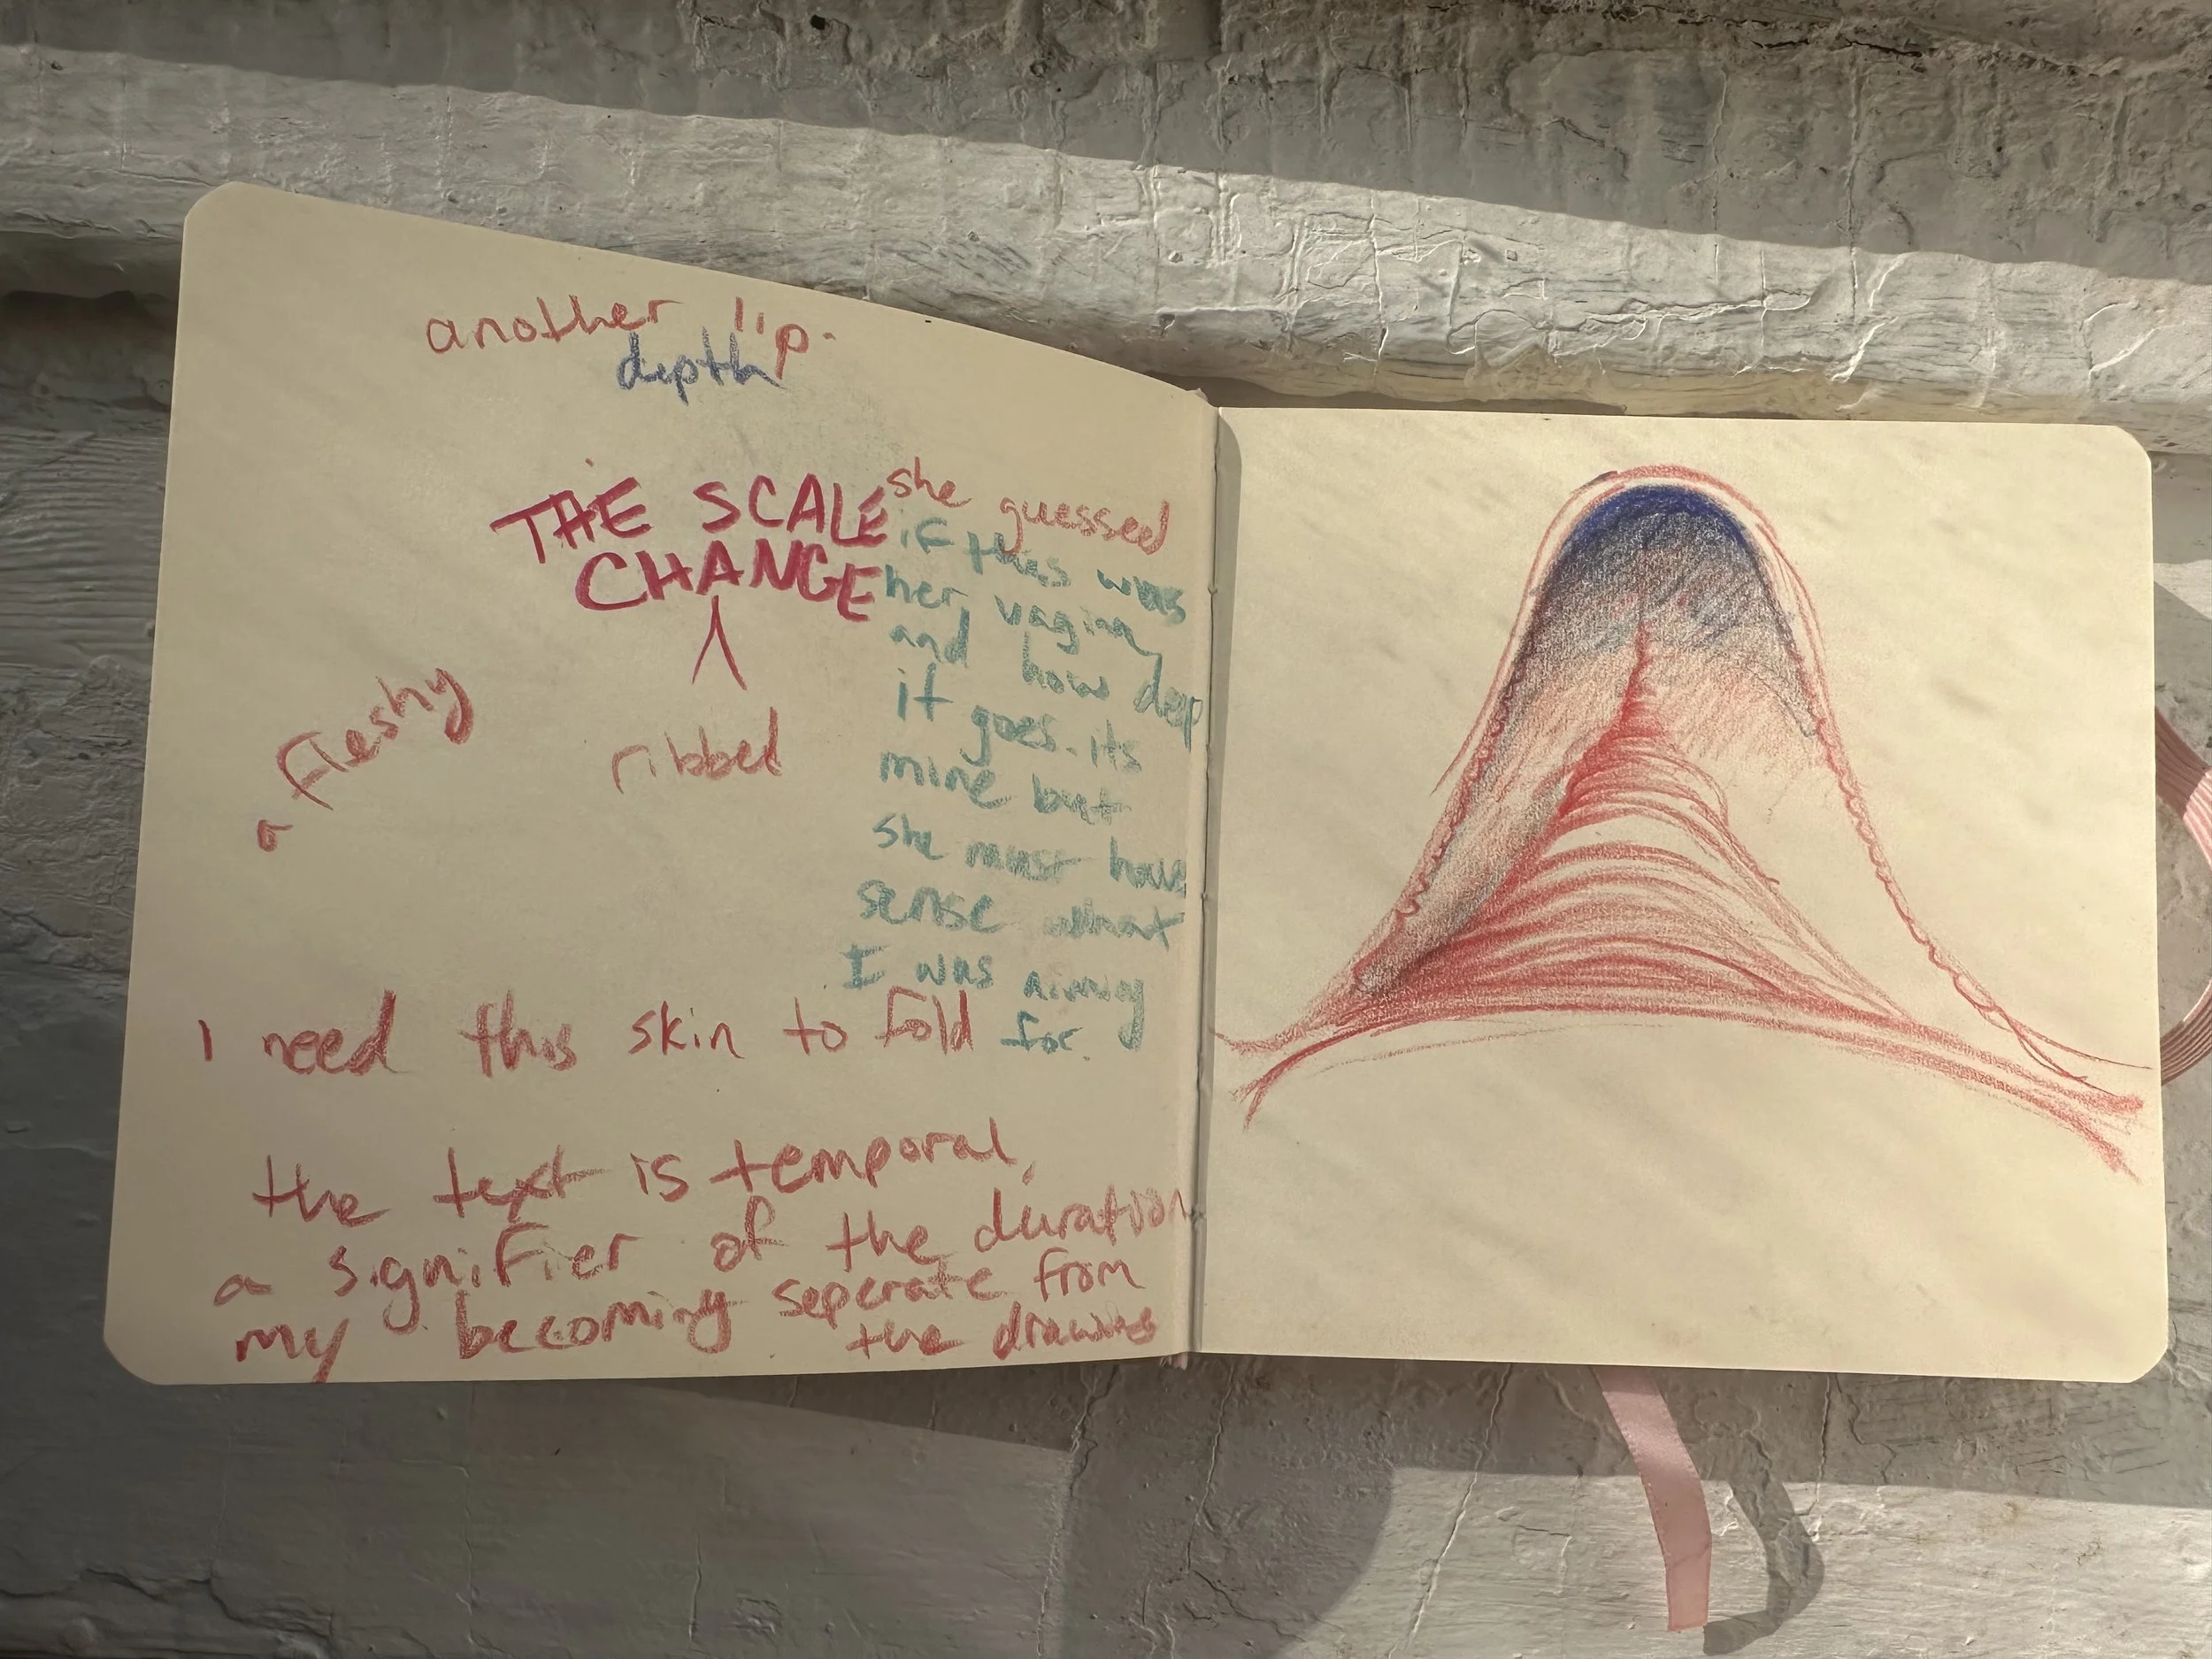 another lip.
depth
THE SCALE
CHANGE
she guessed
if this was
her vagina
and how deep
it goes. its
mine but
she must have
sense what
I was aiming
for.
fleshy
ribbed
I need this skin to fold
the text is temporal,
a signifier of the duration
my becoming seperate from
the drawings